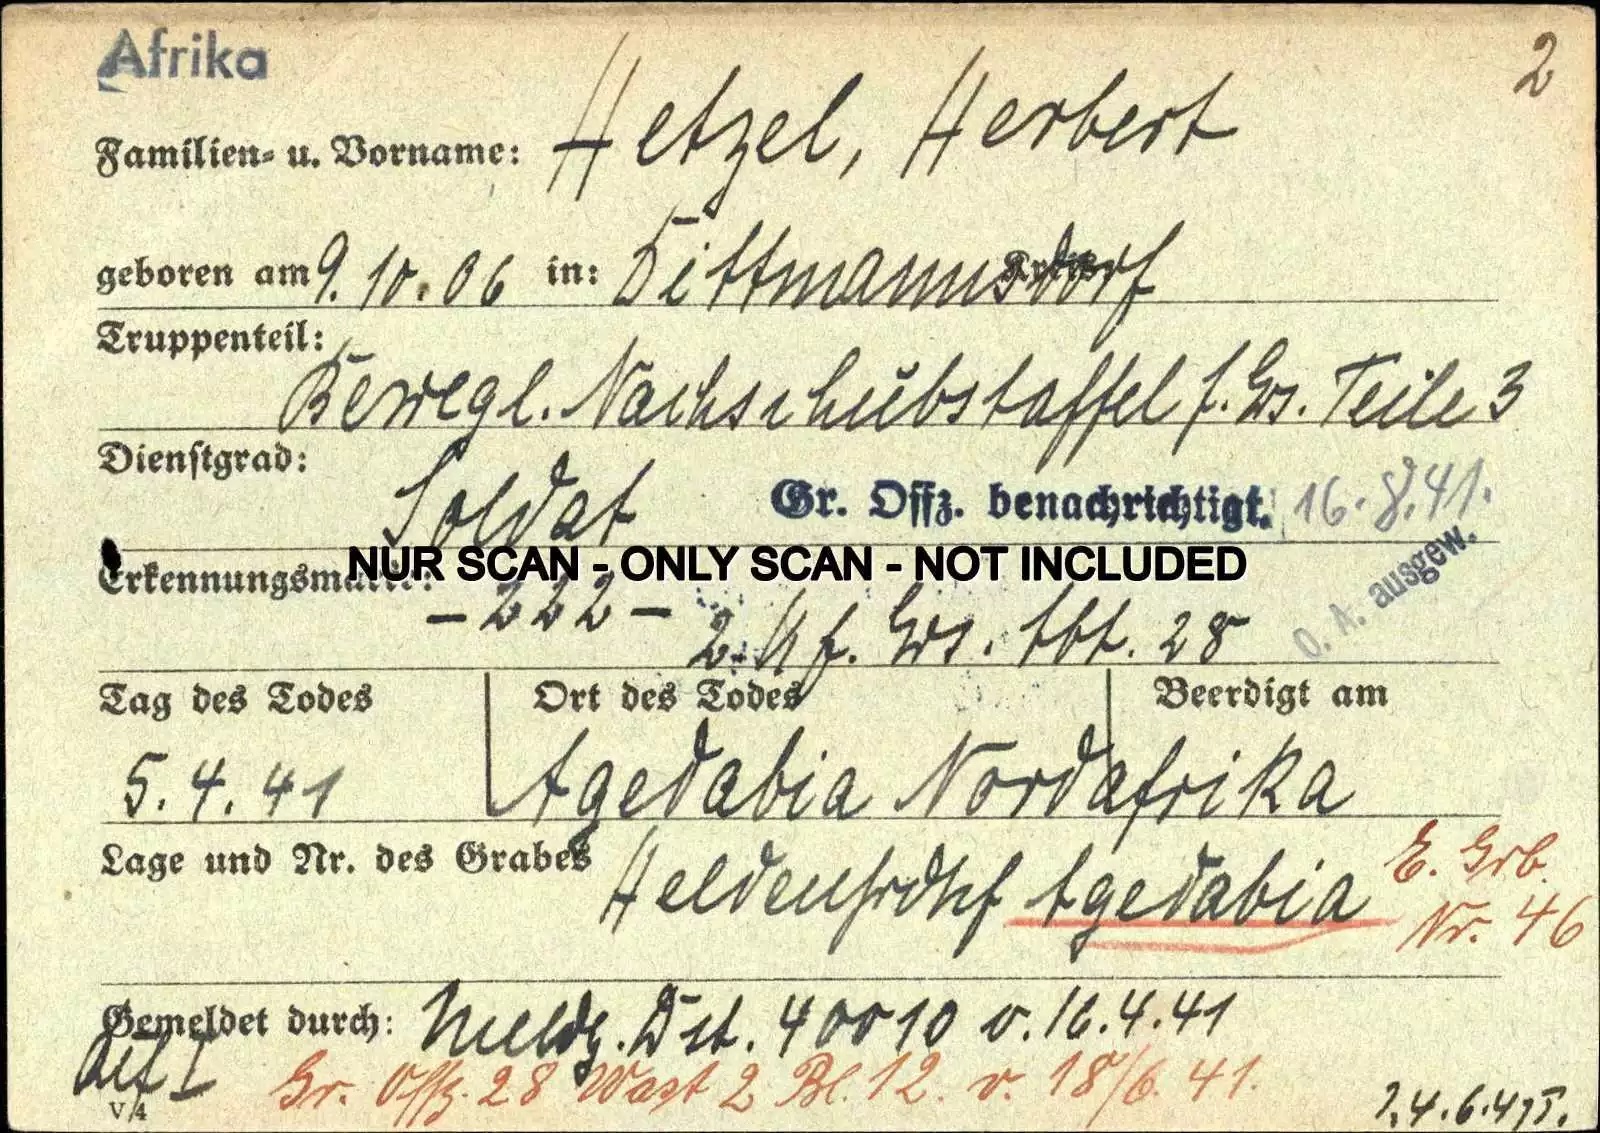 Afrika
2
Familien- u. Vorname: Hetzel, Herbert
geboren am 9.10.06 in: Dittmannsdorf
Truppenteil:
Bewegl. Nachschubstaffel f. Krs. Teile 3
Dienstgrad: Soldat
Gr. Offz. benachrichtigt. 16.8.41.
O. K. ausgew.
NUR SCAN - ONLY SCAN - NOT INCLUDED
Erkennungsmarke: - 222 - 2. Kf. Krs. Abt. 28
Tag des Todes Ort des Todes Beerdigt am
5.4.41 Agedabia Nordafrika
Lage und Nr. des Grabes Heldenfrdhf Agedabia E. Grb. Nr. 46
Gemeldet durch: Meldg. Dst. 40010 v. 16.4.41
Ref I Gr. Offz. 28 Wast 2 Bl. 12. v. 18/6.41.
V/4